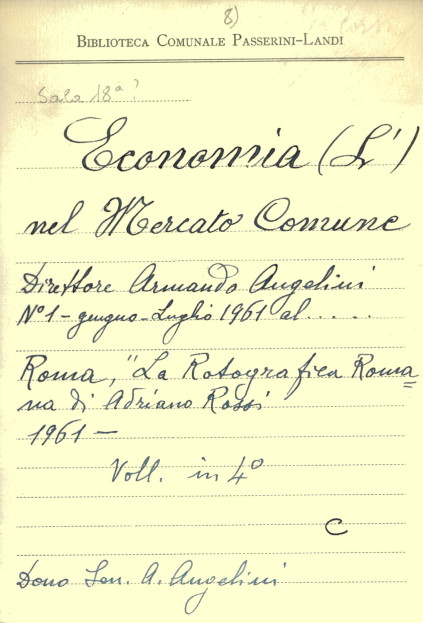 8)
BIBLIOTECA COMUNALE PASSERINI-LANDI
Sala 18ª?
Economia (L')
nel Mercato Comune
Direttore Armando Angelini
N° 1 - giugno - Luglio 1961 al . . . . .
Roma, "La Rotografica Roma=
na di Adriano Rossi
1961 —
Voll. in 4°
C
Dono Sen. A. Angelini